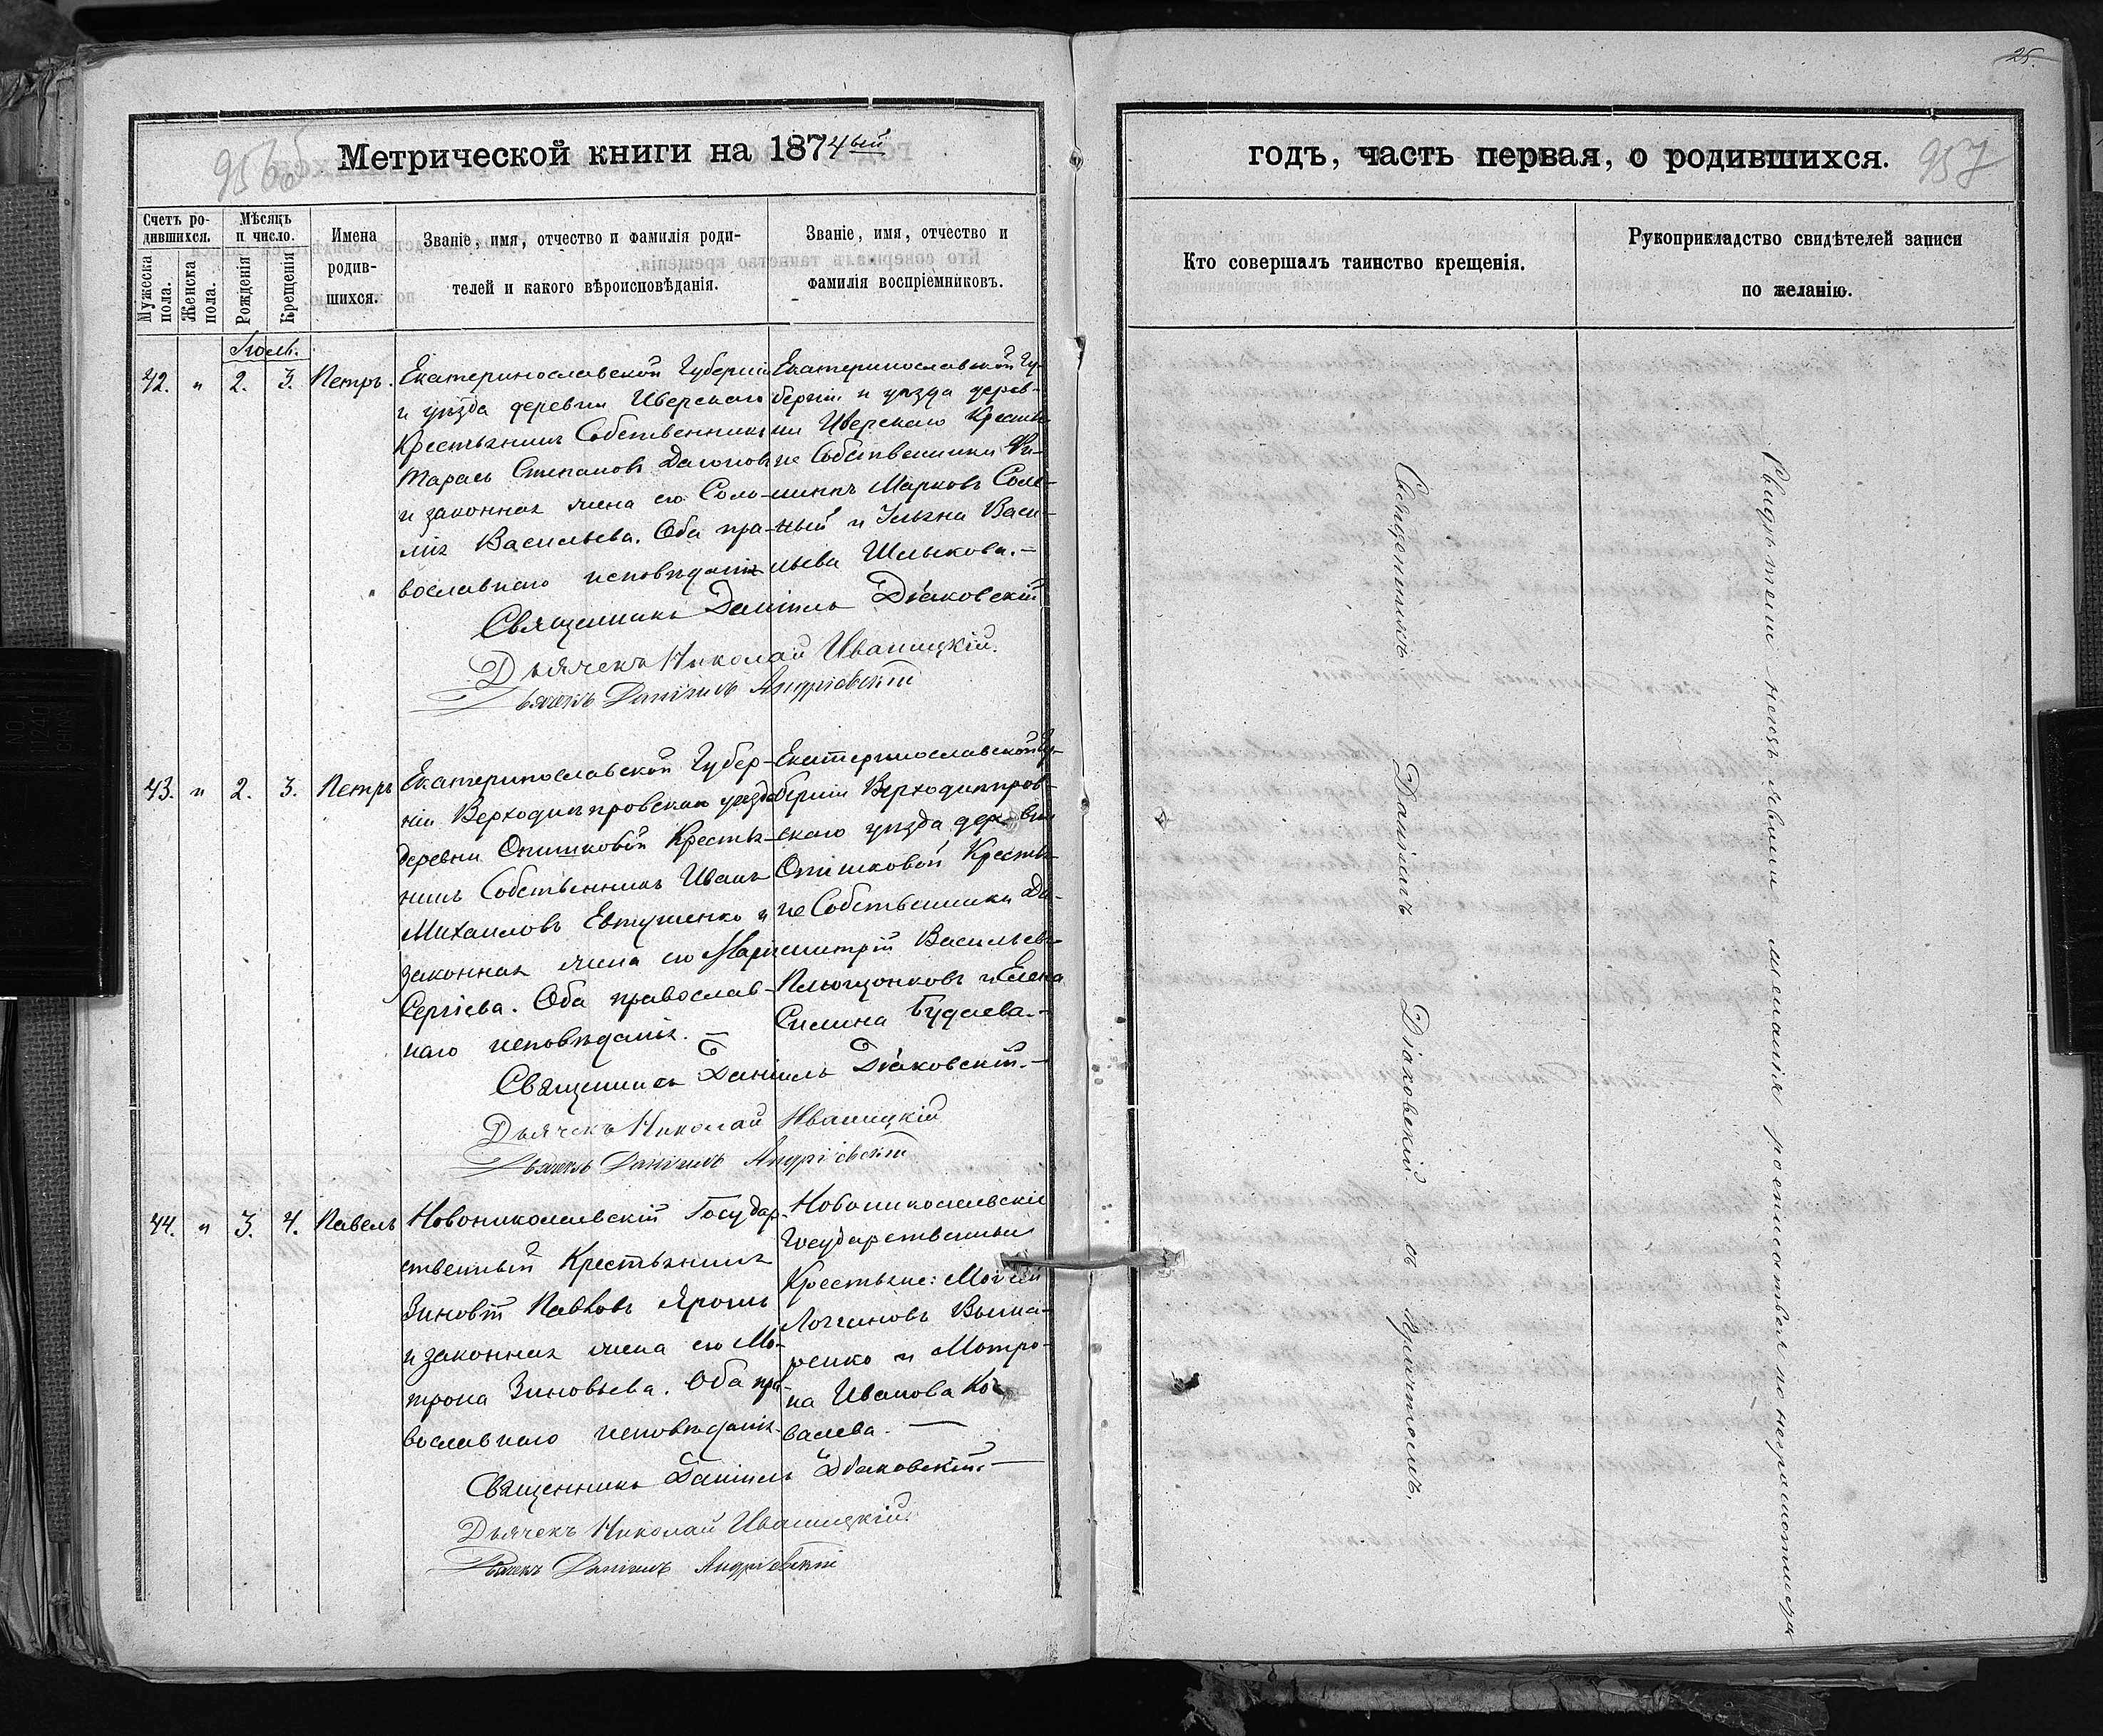 25.
956об
Метрической книги на 1874ый
Счетъ родившихся.
Мужеска пола.
Женска пола.
Мѣсяцъ и число.
Рожденія
Крещенія
Имена родившихся.
Званіе, имя, отчество и фамилія родителей и какого вѣроисповѣданія.
Званіе, имя, отчество и фамилія воспріемниковъ.
Іюль.
42. " 2. 3. Петръ.
Екатеринославской Губерніи
и уѣзда деревни Иверскаго
Крестьянинъ Собственникъ
Тарасъ Степановъ
и законная жена его Соло-
мія Васильева. Оба пра-
вославнаго исповѣданія
Екатеринославской Гу-
берніи и уѣзда дерев-
ни Иверскаго Крестья-
не Собственники Фи-
липпъ Марковъ
и Ульяна Васи-
льева
Священникъ Даніилъ Діаковскій
Дьячекъ Николай Иваницкій.
Дьячекъ Даніилъ Андріевскій
43. " 2. 3. Петръ
Екатеринославской Губер-
ніи Верходнѣпровскаго уѣзда
деревни Опишковой Крестья-
нинъ Собственникъ Иванъ
Михаиловъ Евтушенко и
законная жена его Марія
Сергіева. Оба православ-
наго исповѣданія. —
Екатеринославской Гу-
берніи Верходнѣпров-
скаго уѣзда деревни
Опишковой Крестья-
не Собственники Ди-
митрій Васильевъ
и Елена
Силина
Священникъ Даніилъ Діаковскій. —
Дьячекъ Николай Иваницкій
Дьячекъ Даніилъ Андріевскій
44. " 3. 4. Павелъ
Новониколаевскій Государ-
ственный Крестьянинъ
Зиновій Павловъ Ярошъ
и законная жена его Мо-
трона Зиновьева. Оба пра-
вославнаго исповѣданія.
Новониколаевскіе
Государственные
Крестьяне: Моисей
Логиновъ
и Мотро-
на Иванова Ко-
валева. —
Священникъ Даніилъ Діаковскій. —
Дьячекъ Николай Иваницкій.
Дьячекъ Даніилъ Андріевскій
годъ, часть первая, о родившихся.
957
Кто совершалъ таинство крещенія.
Рукоприкладство свидѣтелей записи по желанію.
Священникъ Даніилъ Діаковскій съ причтомъ.
Свидѣтели неизъявили желанія росписаться по неграмотности